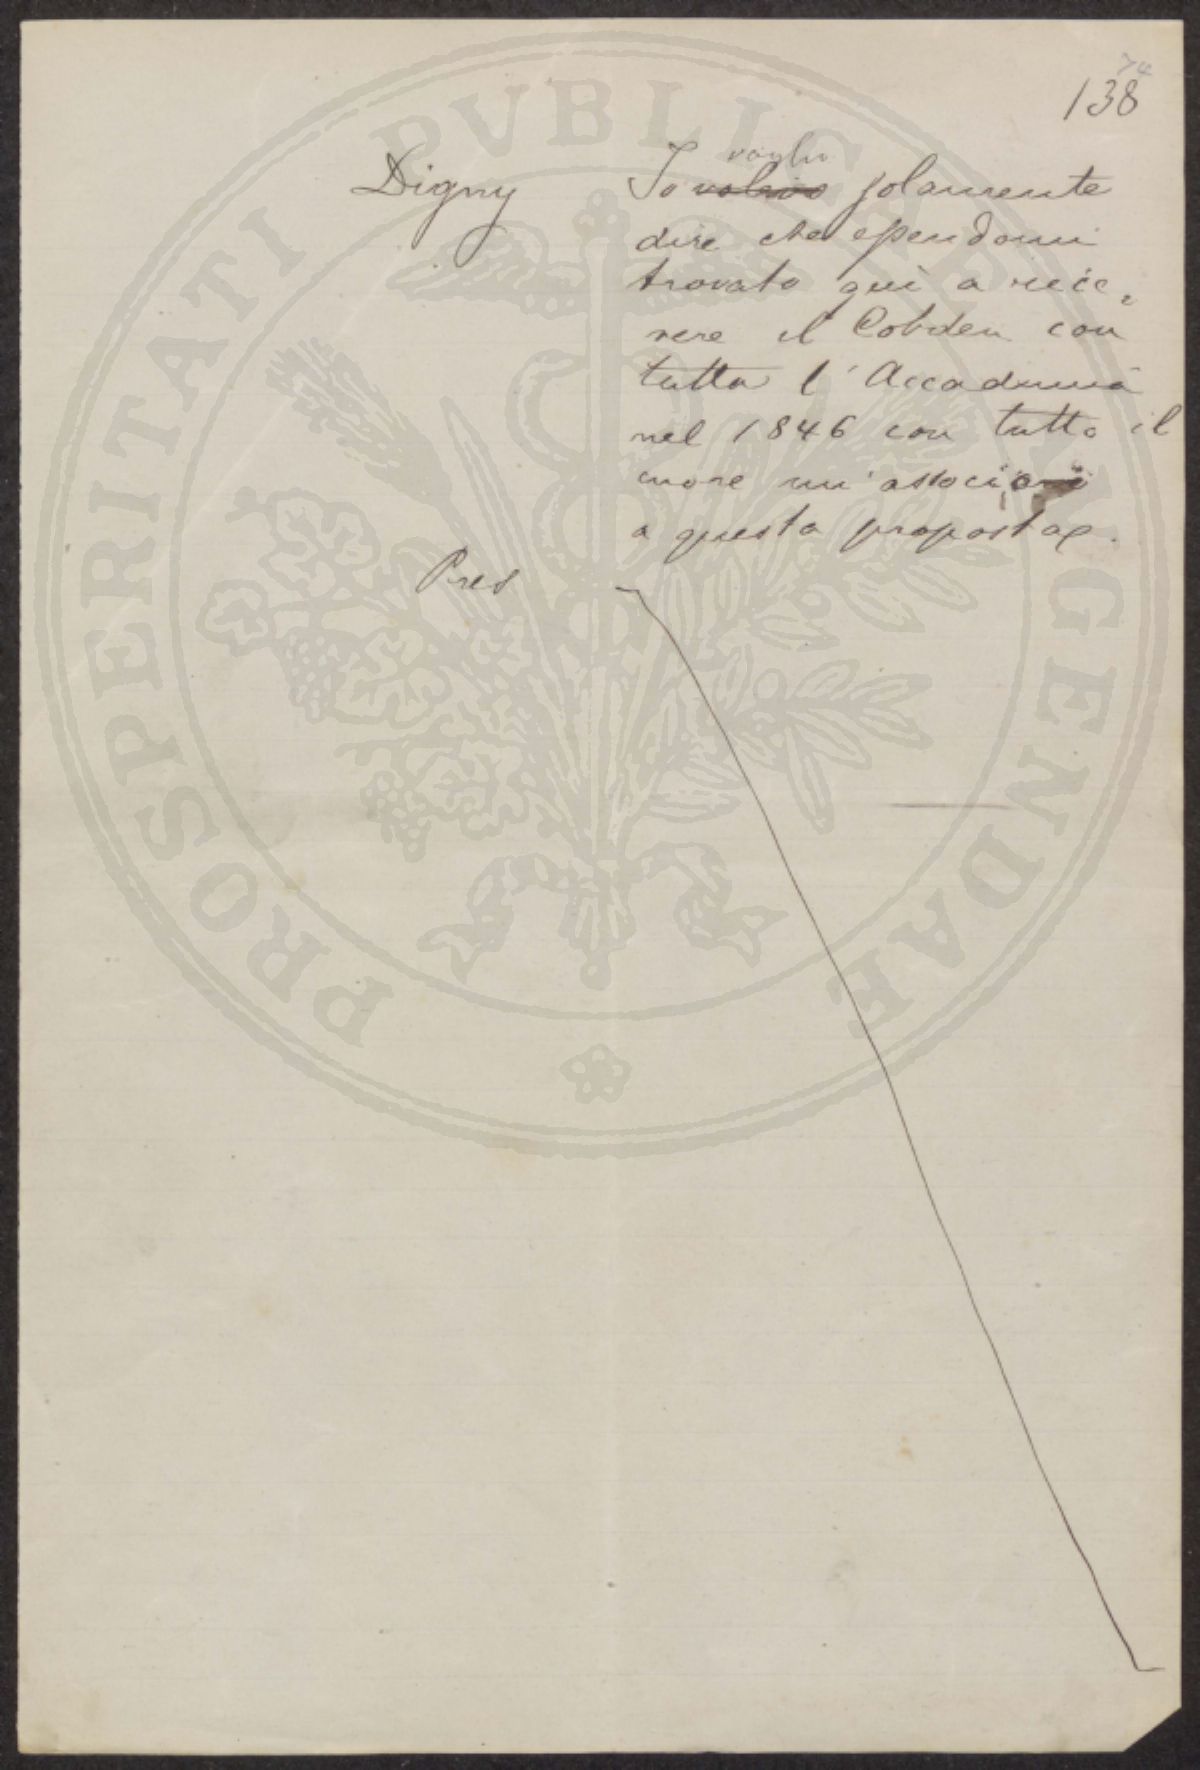 74
138
Digny
voglio
Io volevo solamente
dire che essendomi
trovato qui a rice-
vere il Cobden con
tutta l'Accademia
nel 1846 con tutto il
cuore mi associo
a questa proposta.
Pres
PROSPERITATI PVBLICAE AVGENDAE